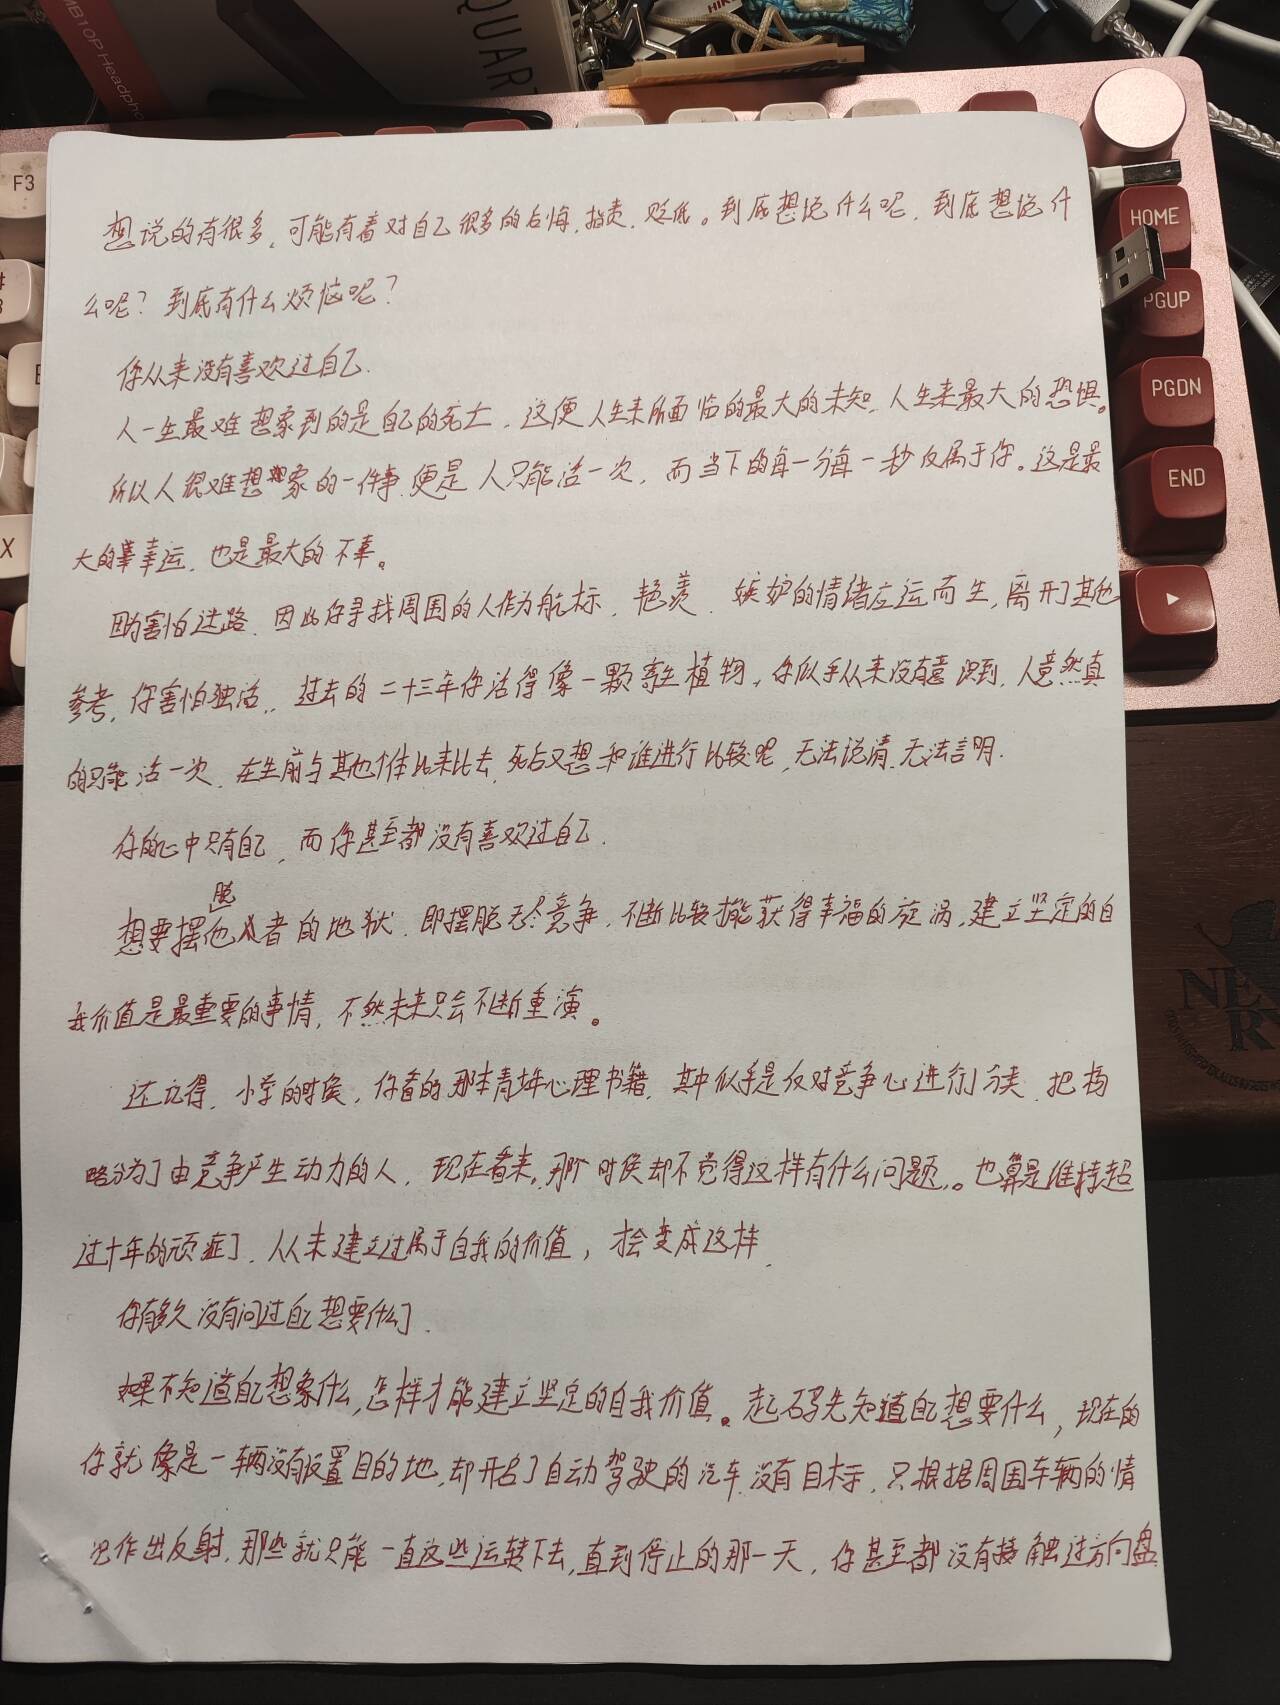 MB10P Headpho
QUAR
HIK
F3
HOME
PGUP
PGDN
END
X
想说的有很多，可能有着对自己很多的后悔，指责，贬低。到底想说什么呢，到底想说什
么呢？到底有什么烦恼呢？
你从来没有喜欢过自己.
人一生最难想象到的是自己的死亡，这便人生来所面临的最大的未知，人生来最大的恐惧。
所以人很难想象的一件事便是人只能活一次，而当下的每一分每一秒仅属于你。这是最
大的幸运，也是最大的不幸。
因为害怕迷路，因此你寻找周围的人作为航标，艳羡、嫉妒的情绪应运而生，离开了其他
参考，你害怕独活，过去的二十三年你活得像一颗寄生植物，你似乎从来没有意识到，人竟然真
的只能活一次，在生前与其他个体比来比去，死后又想和谁进行比较呢，无法说清，无法言明.
你的心中只有自己，而你甚至都没有喜欢过自己.
想要摆脱他者的地狱，即摆脱无尽竞争，不断比较才能获得幸福的旋涡，建立坚定的自
我价值是最重要的事情，不然未来只会不断重演。
还记得，小学的时候，你看的那本青少年心理书籍，其中似乎是反对竞争心进行分类，把
略分为了由竞争产生动力的人，现在看来，那个时候却不觉得这样有什么问题。也算是维持超
过十年的顽症了，从未建立过属于自我的价值，才会变成这样.
你有多久没有问过自己想要什么了.
如果不知道自己想象什么，怎样才能建立坚定的自我价值。起码先知道自己想要什么，现在的
你就像是一辆没有设置目的地，却开启了自动驾驶的汽车，没有目标，只根据周围车辆的情
况作出反射，那些就只能一直这些运转下去，直到停止的那一天，你甚至都没有接触过方向盘